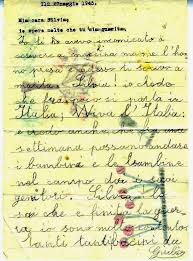 Il 2 Maggio 1945.
Mia cara Silvia,
io spero molto che tu sia guarita.
Io ti ho
scrivere macchina ma me l'han
no presa e adesso ti scrivo a
mano. Silvia! io chedo
che fra poco si parla in
Italia; Viva l'Italia!
e credo anche che una
settimana possano andare
i bambini e le bambine
nel campo dei suoi
genitori. Silvia! Lo
sai che e finita la guer
ra, io sono molto contento
tanti tanti baci da
Giulio